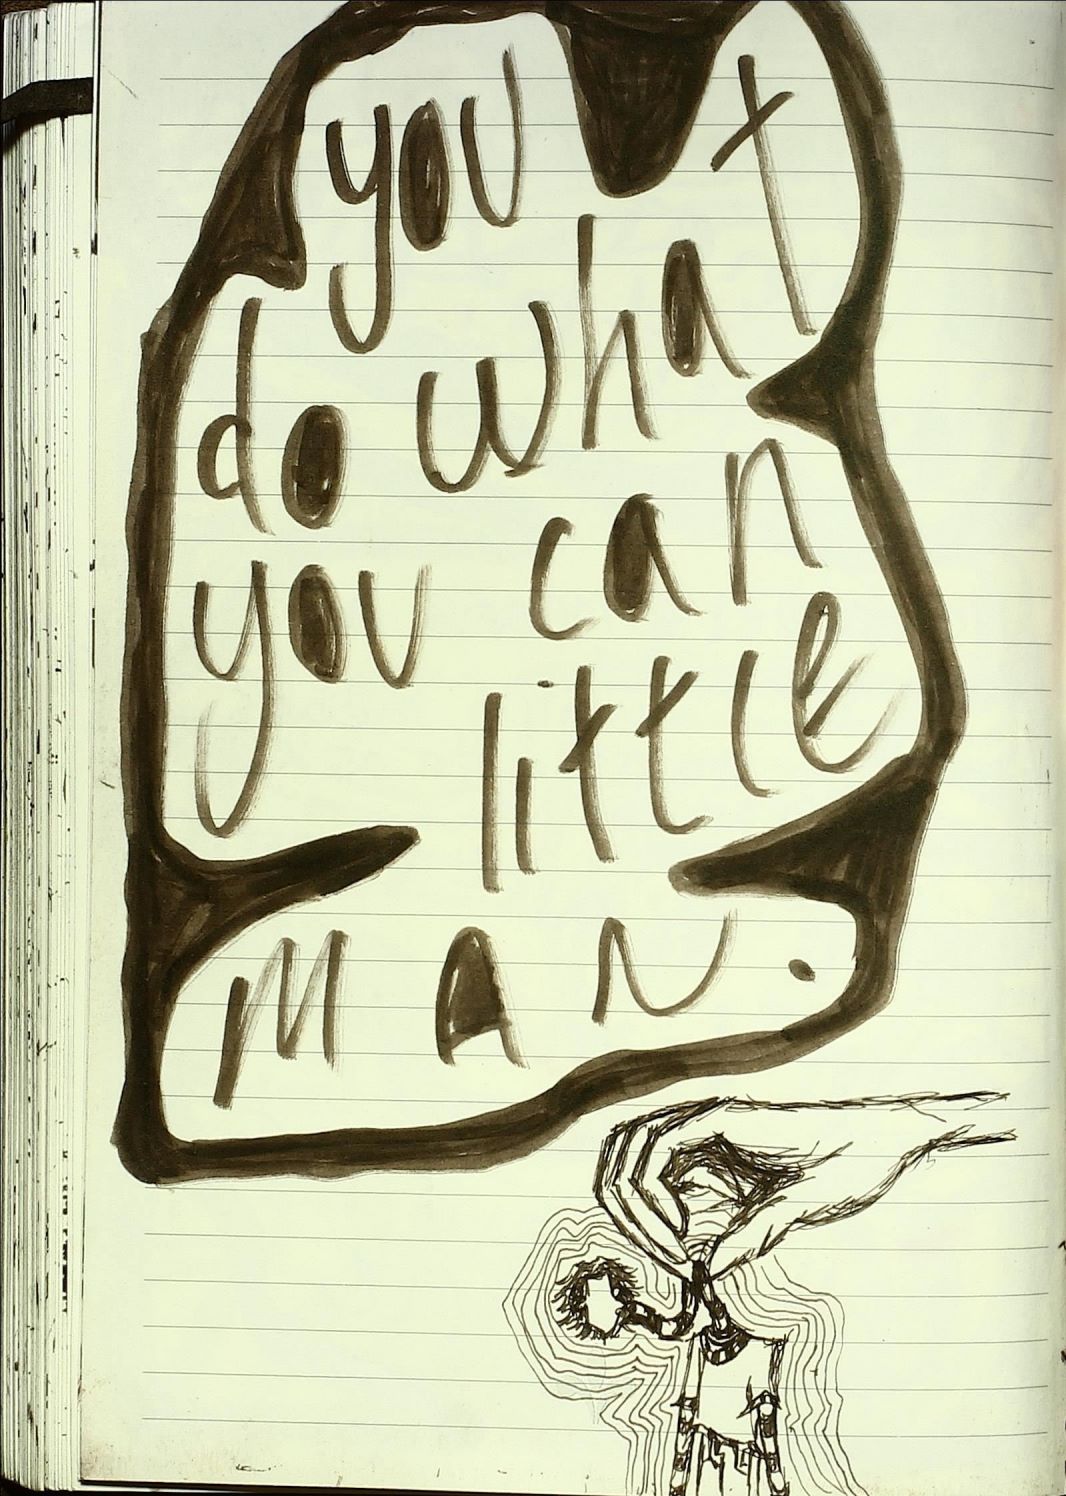 you
do what
you can
little
MAN.